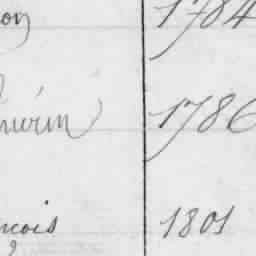 on 1784
uérin 1786
nçois 1801